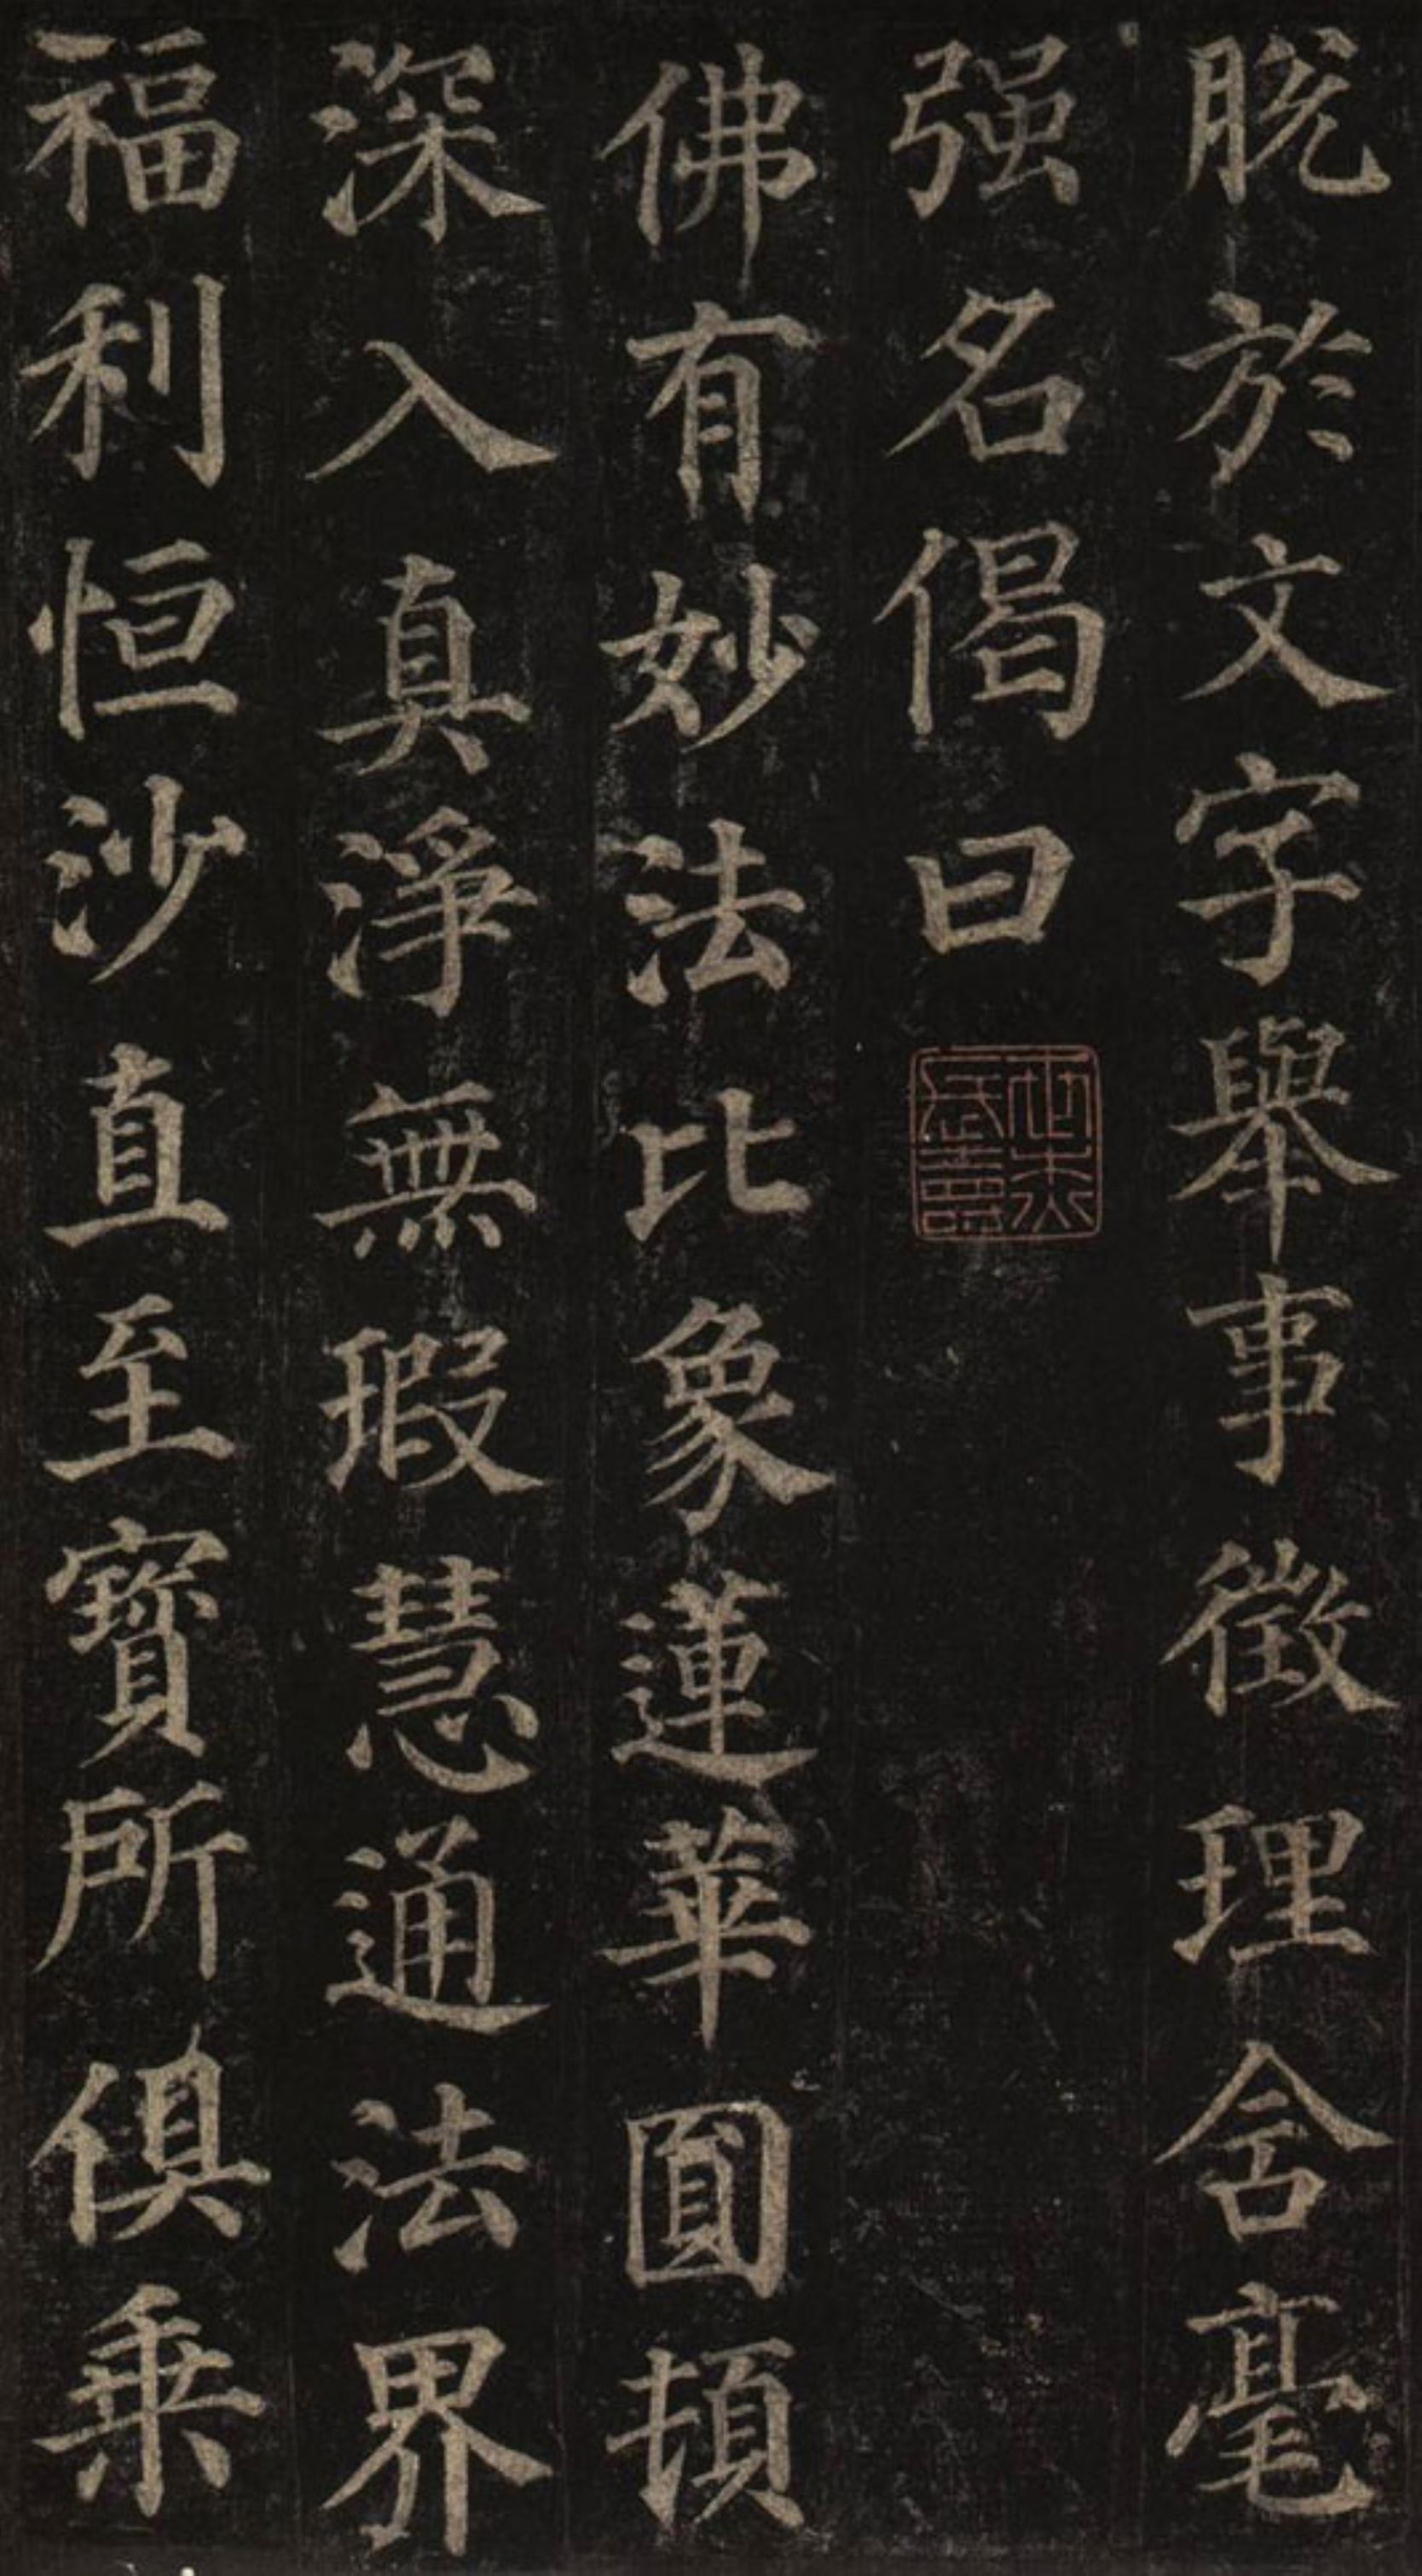 脱於文字舉事徵理含毫
强名偈曰
佛有妙法比象蓮華圓頓
深入真淨無瑕慧通法界
福利恒沙直至寶所俱乗